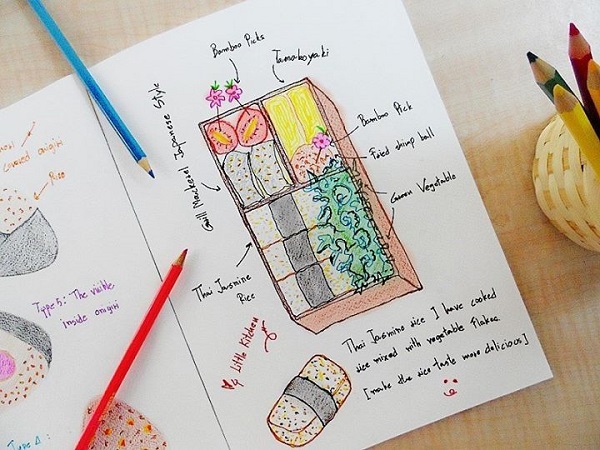 Bamboo Picks
Tamagoyaki
Bamboo Pick
Fried shrimp ball
Green Vegetable
Grill Mackerel Japanese Style
Thai Jasmine
Rice
Little Kitchen
Thai Jasmine rice I have cooked
rice mixed with vegetable flakes
[make the rice taste more delicious]
covered onigiri
Rice
Type 5: The visible
inside onigiri
Type 4: